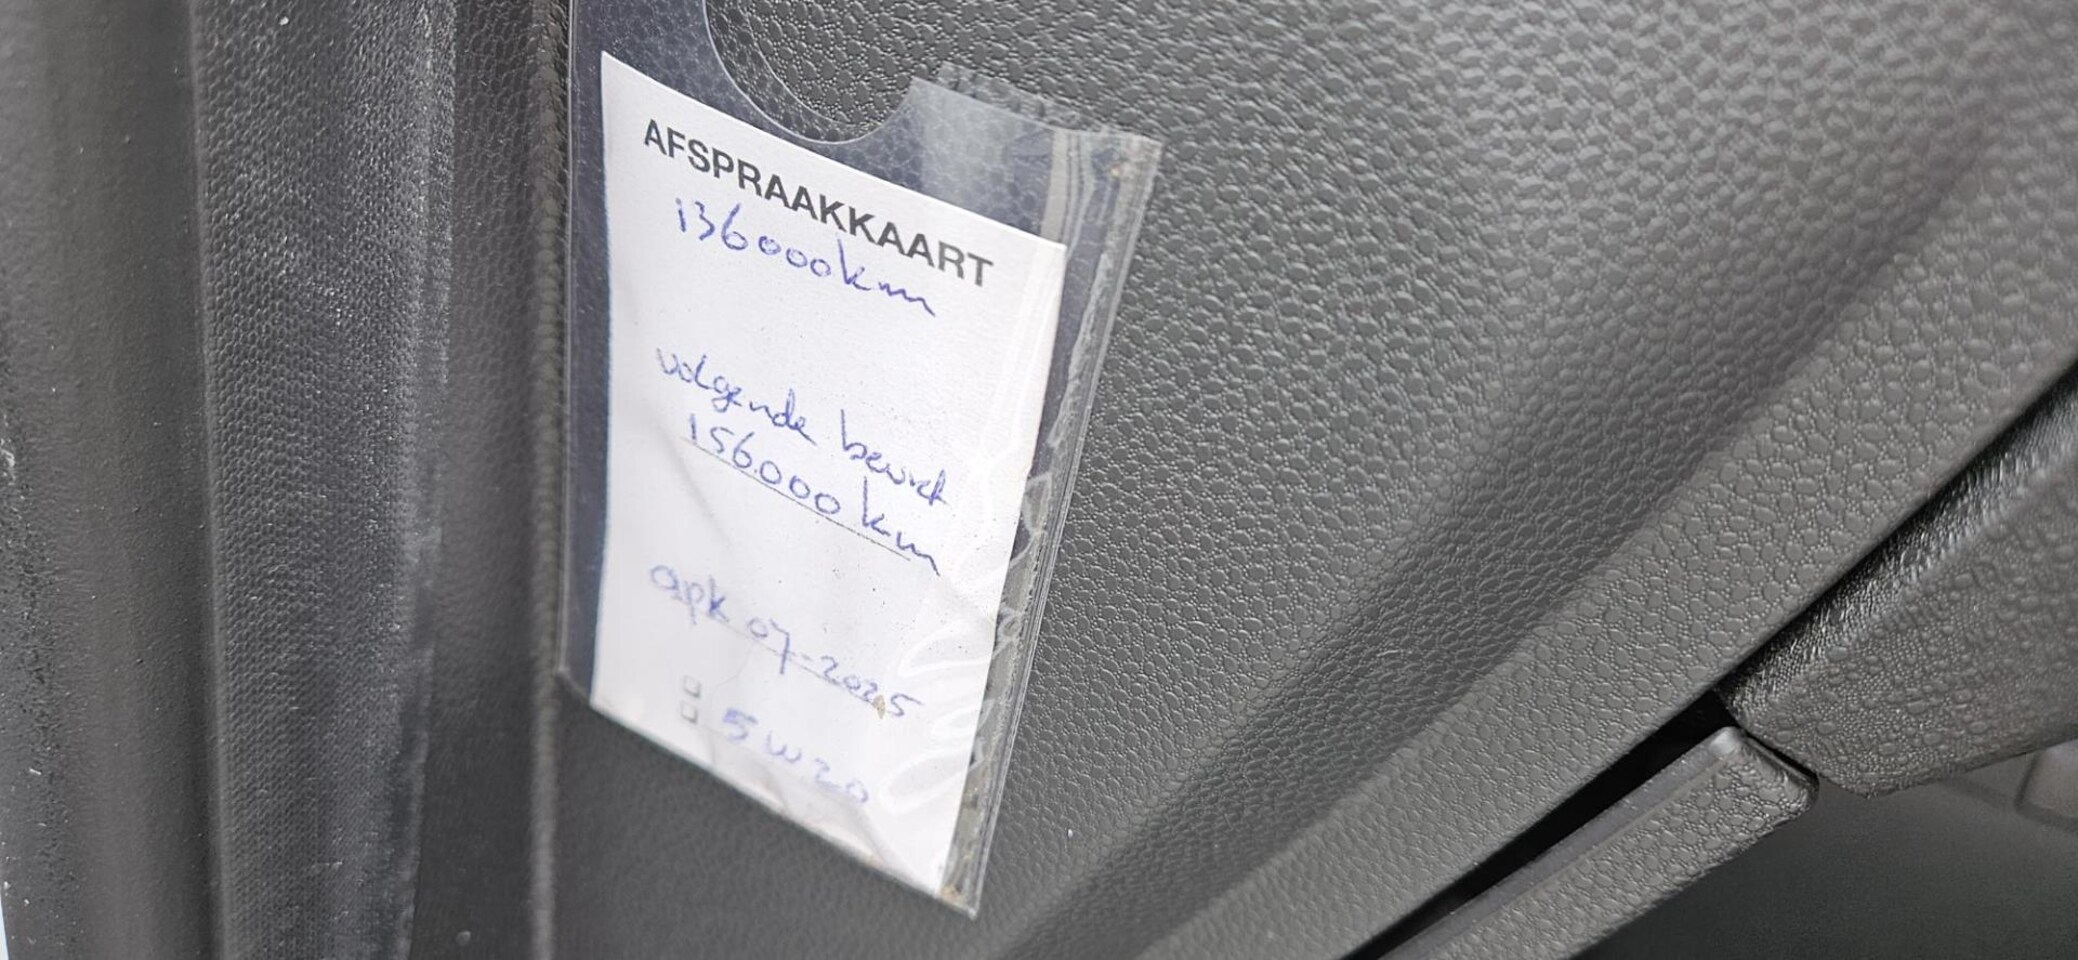 AFSPRAAKKAART
136000km
volgende beurt
156.000 km
apk 07-2025
5w20